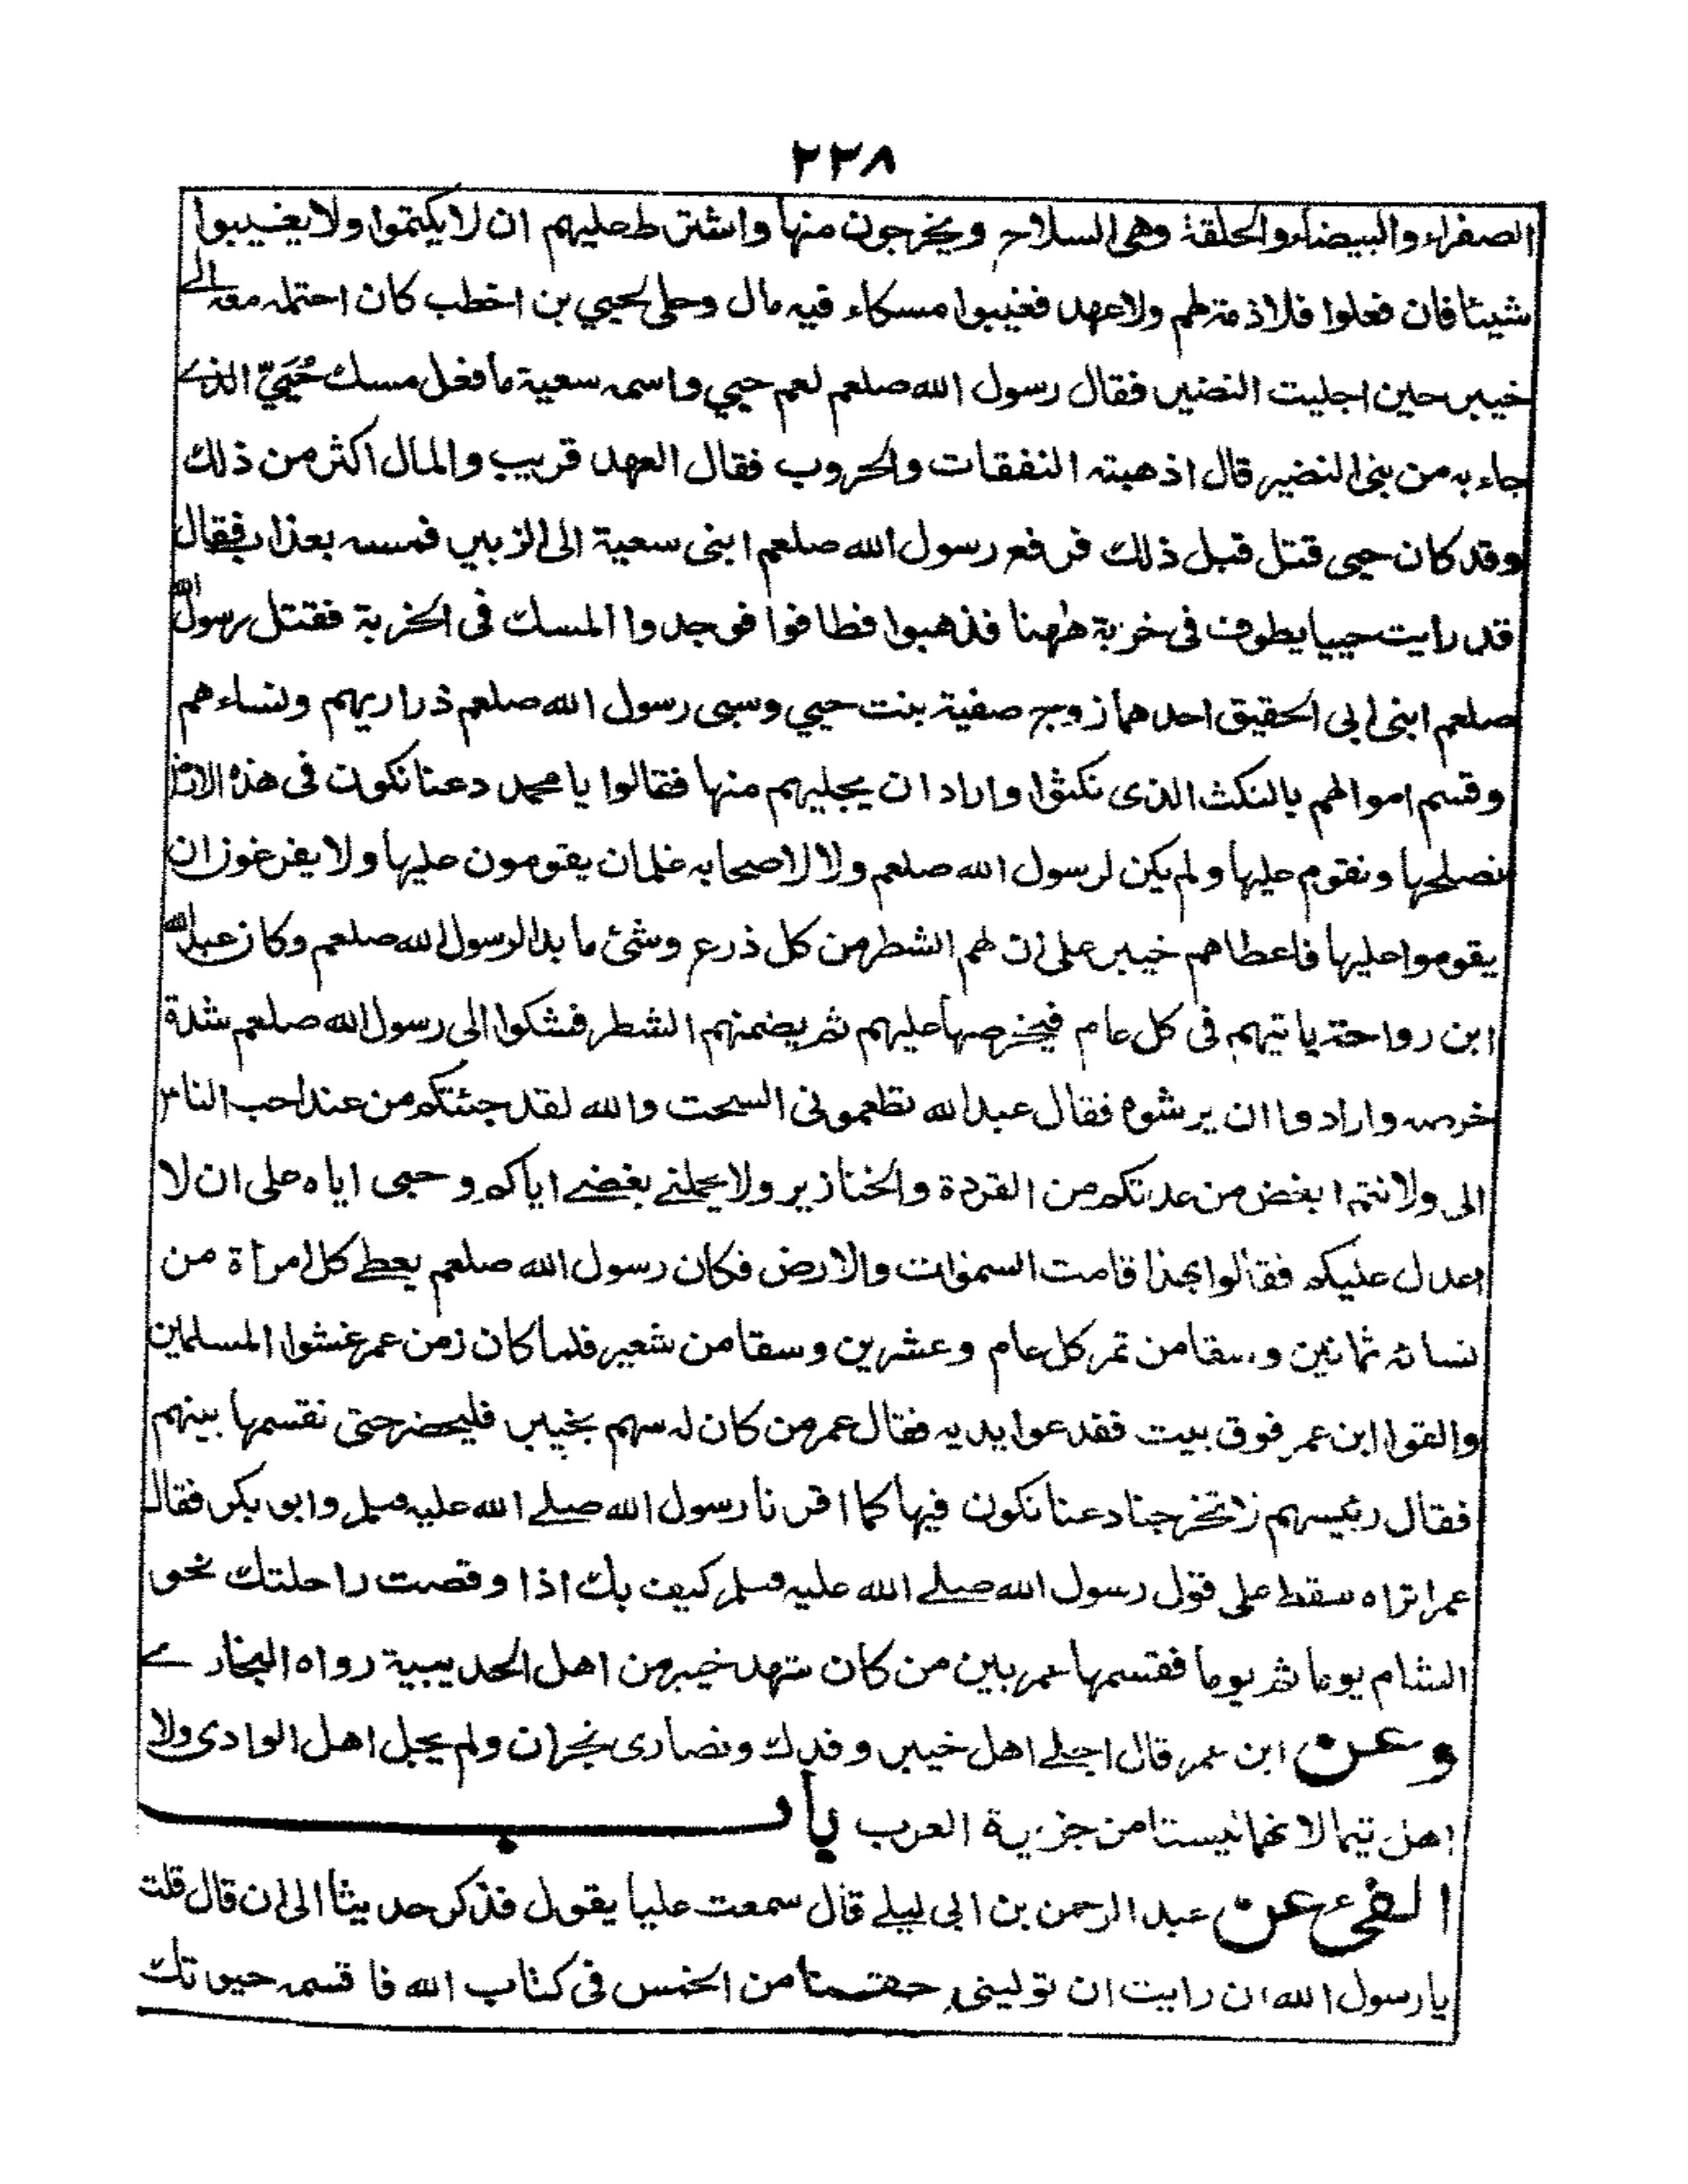 ٢٢٨
الصفراء والبيضاء والحلقة وهى السلاح ويخرجون منها واشترط عليهم ان لا يكتموا ولا يغيبوا
شيئا فان فعلوا فلا ذمة لهم ولا عهد فغيبوا مسكاء فيه مال وحلى لحيي بن اخطب كان احتمله معه الى
خيبر حين اجليت النضير فقال رسول الله صلعم لعم حيي واسمه سعية ما فعل مسك حُيَيّ الذے
جاء به من بنى النضير قال اذهبته النفقات والحروب فقال العهد قريب والمال اكثر من ذلك
وقد كان حيى قتل قبل ذلك فرفع رسول الله صلعم ابنى سعية الى الزبير فمسه بعذاب فقال
قد رايت حييا يطوف فى خربة ههنا فذهبوا فطافوا فوجدوا المسك فى الخربة فقتل رسول الله
صلعم ابنى ابى الحقيق احدهما زوج صفية بنت حيي وسبى رسول الله صلعم ذراريهم ونساءهم
وقسم اموالهم بالنكث الذى نكثوا واراد ان يجليهم منها فقالوا يا محمد دعنا نكون فى هذه الارض
نصلحها ونقوم عليها ولم يكن لرسول الله صلعم ولا لاصحابه غلمان يقومون عليها ولا يفرغوز ان
يقوموا عليها فاعطاهم خيبر على ان لهم الشطر من كل ذرع وشئ ما بدا لرسول الله صلعم وكان عبد الله
ابن رواحة ياتيهم فى كل عام فيخرصها عليهم ثم يضمنهم الشطر فشكوا الى رسول الله صلعم شدة
خرصه وارادوا ان يرشوه فقال عبد الله تطعمونى السحت والله لقد جئتكم من عند احب الناس
الى ولانتم ابغض من عدتكم من القردة والخنازير ولا يحملنے بغضے اياكم وحبى اياه على ان لا
اعدل عليكم فقالوا بهذا قامت السموات والارض فكان رسول الله صلعم يعطے كل امرأة من
نسائه ثمانين وسقا من تمر كل عام وعشرين وسقا من شعير فلما كان زمن عمر غشوا المسلمين
والقوا ابن عمر فوق بيت ففدعوا يديه فقال عمر من كان له سهم بخيبر فليحضر حتى نقسمها بينهم
فقال رئيسهم لا تخرجنا دعنا نكون فيها كما اقرنا رسول الله صلے الله عليه وسلم وابو بكر فقال
عمر اتراه سقط على قول رسول الله صلے الله عليه وسلم كيف بك اذا وقصت راحلتك نحو
الشام يوما ثم يوما فقسمها عمر بين من كان شهد خيبر من اهل الحديبية رواه البخارے
وعن ابن عمر قال اجلے اهل خيبر وفدك ونصارى نجران ولم يجل اهل الوادى ولا
اهل تيما لانهما ليستا من جزيرة العرب باب
الفئ عن عبد الرحمن بن ابى ليلے قال سمعت عليا يقول فذكر حديثا الى ان قال قلت
يا رسول الله ان رايت ان تولينى حقنا من الخمس فى كتاب الله فاقسمه حيوتك